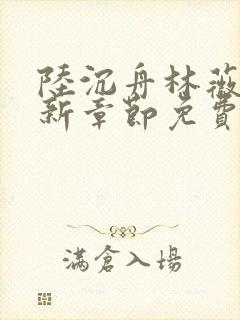 陸沉舟林薇
新章節免費
满倉入場